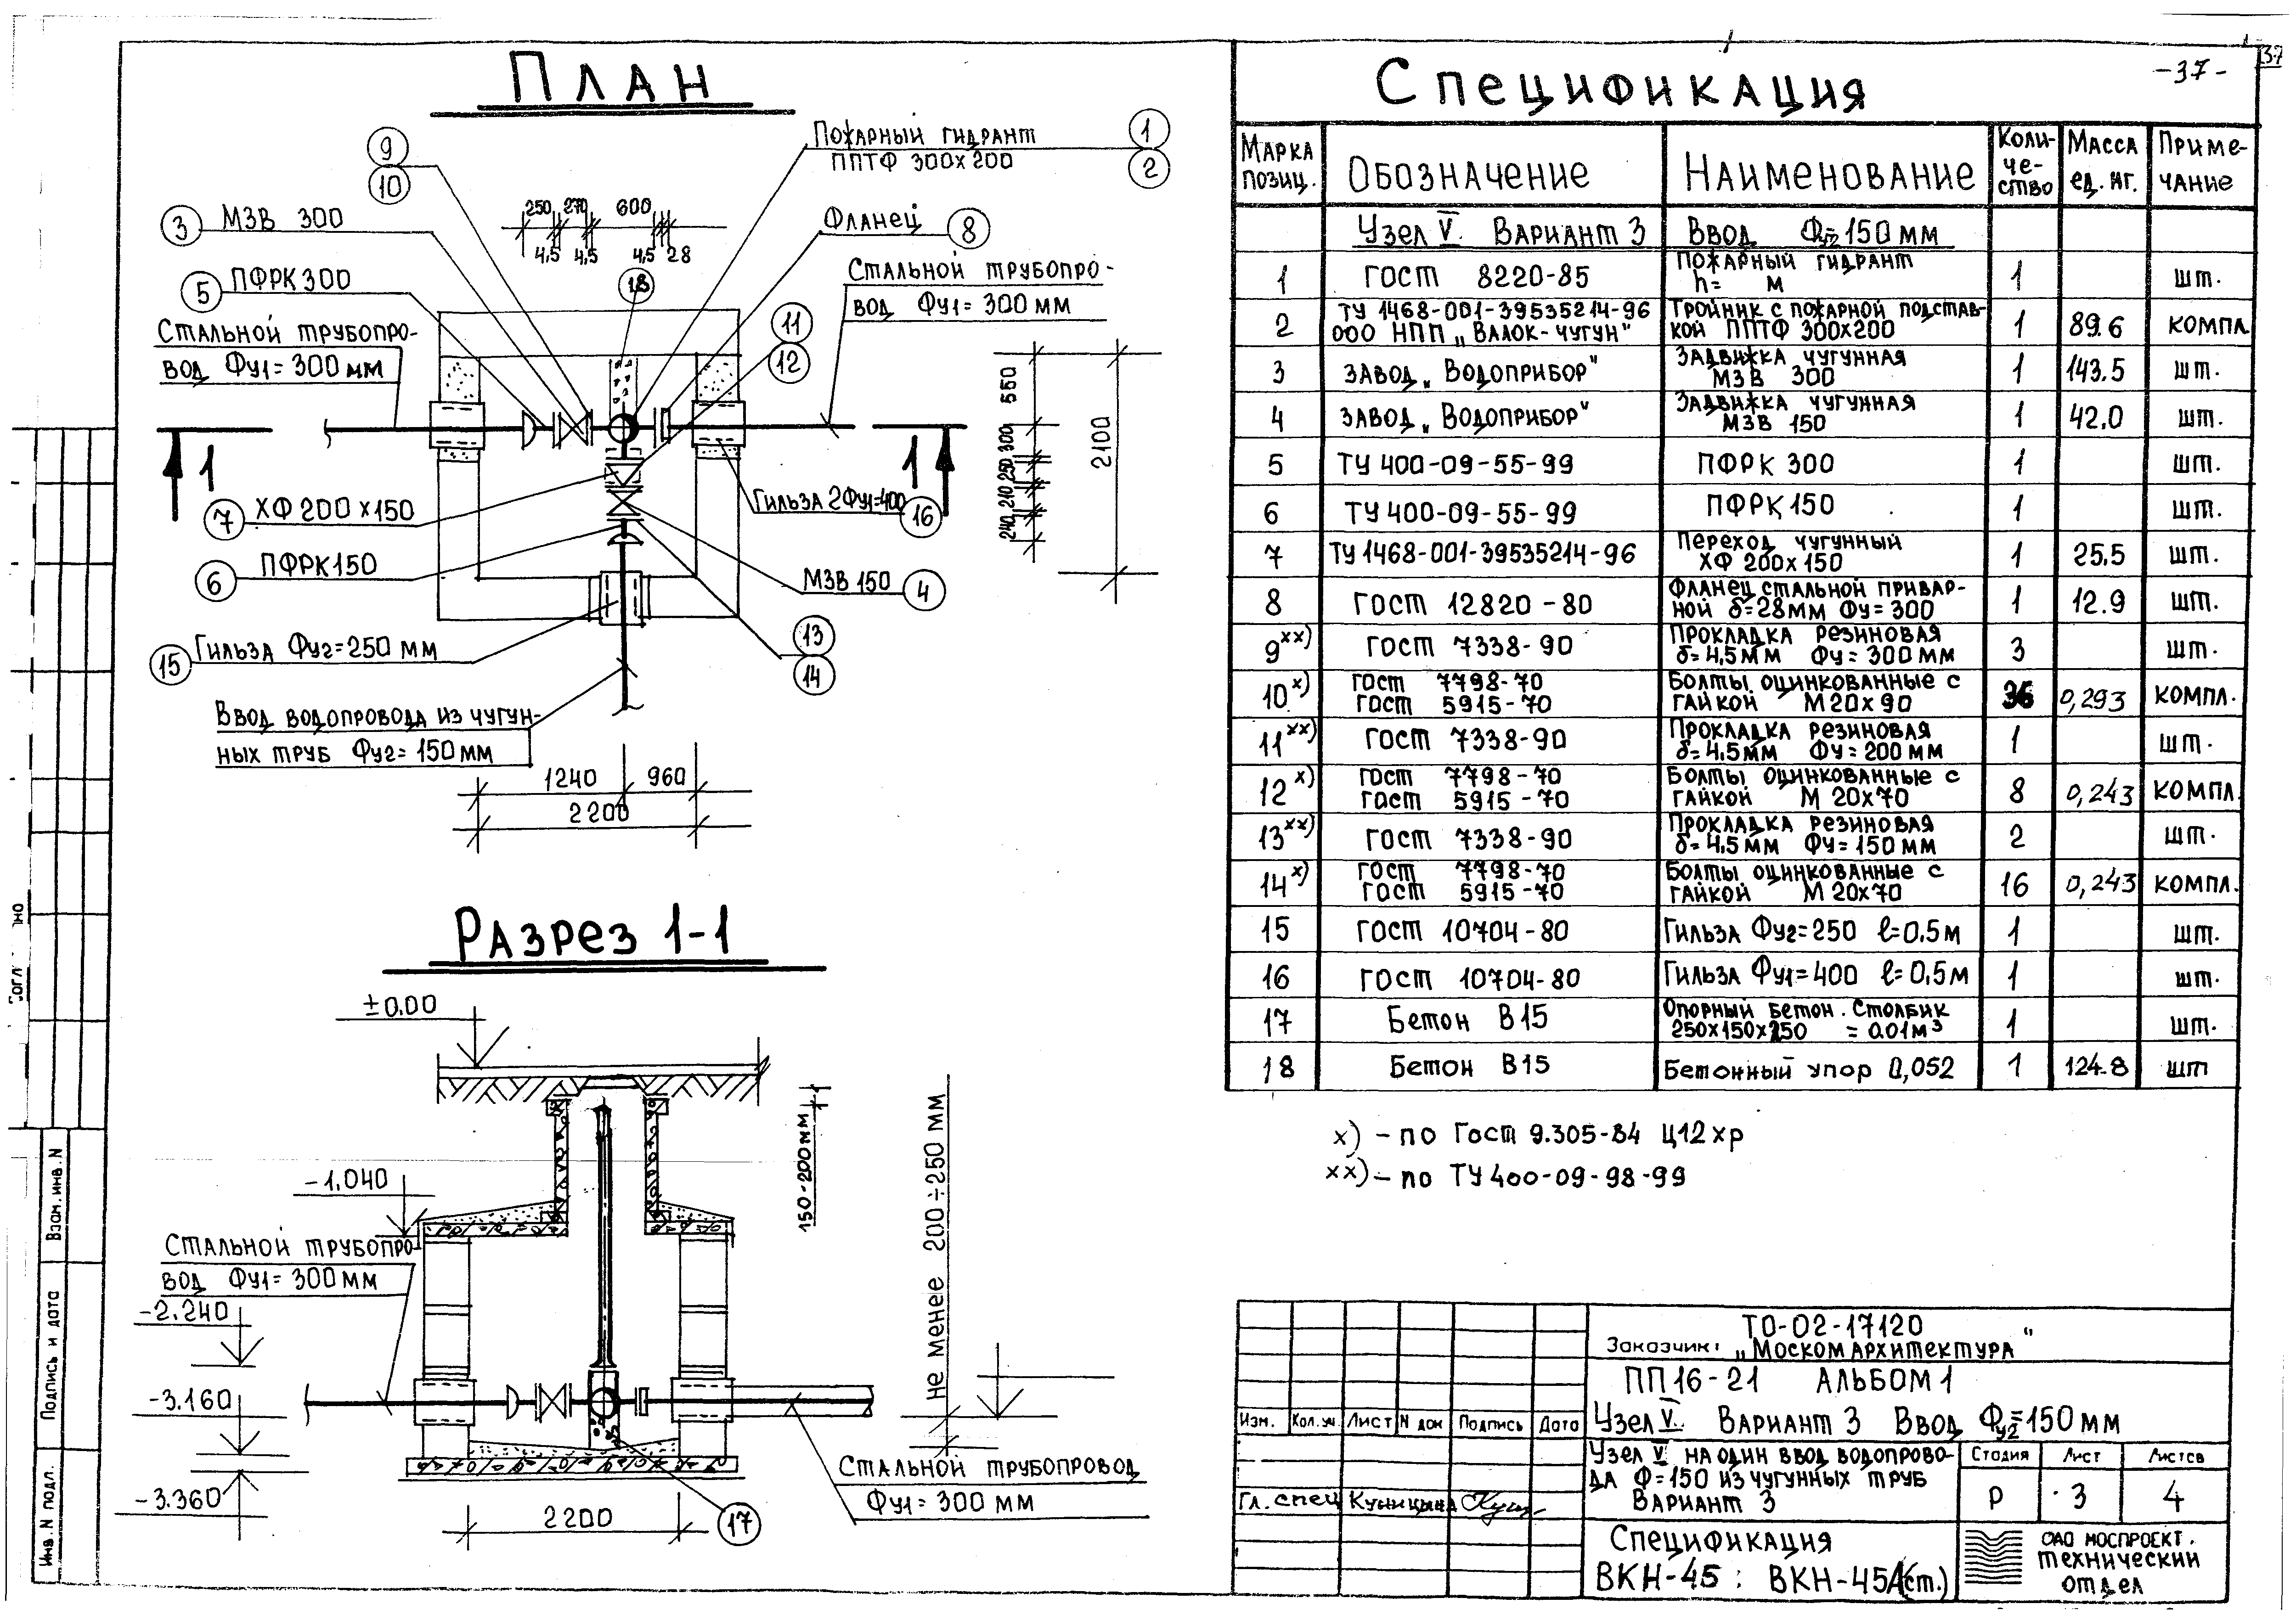 37
-37-
План
9
10
Пожарный гидрант
ППТФ 300х200
1
2
3
МЗВ 300
250 270 600
4,5 4,5 4,5 28
Фланец
8
5
ПФРК 300
18
Стальной трубопро-
вод Фу1=300 мм
Стальной трубопро-
вод Фу1=300 мм
11
12
550
300
250
210
240
2100
1
1
7
ХФ 200х150
Гильза 2Фу1=400
16
6
ПФРК150
МЗВ 150
4
13
14
15
Гильза Фу2=250 мм
Ввод водопровода из чугун-
ных труб Фу2=150 мм
1240 960
2200
Разрез 1-1
±0.00
-1.040
150-200мм
Не менее 200÷250 мм
Стальной трубопро-
вод Фу1=300 мм
-2.240
-3.160
-3.360
Стальной трубопровод
Фу1=300 мм
2200
17
Спецификация
Марка позиц. Обозначение Наименование Коли-че-ство Масса ед. кг. Приме-чание
Узел V. Вариант 3 Ввод Фу2=150 мм
1 ГОСТ 8220-85 Пожарный гидрант h= м 1 шт.
2 ТУ 1468-001-39535214-96 ООО НПП „Валок-чугун" Тройник с пожарной подстав-кой ППТФ 300х200 1 89.6 компл.
3 завод „Водоприбор" Задвижка чугунная МЗВ 300 1 143.5 шт.
4 завод „Водоприбор" Задвижка чугунная МЗВ 150 1 42.0 шт.
5 ТУ 400-09-55-99 ПФРК 300 1 шт.
6 ТУ 400-09-55-99 ПФРК 150 1 шт.
7 ТУ 1468-001-39535214-96 Переход чугунный ХФ 200х150 1 25.5 шт.
8 ГОСТ 12820-80 Фланец стальной привар-ной δ=28мм Фу=300 1 12.9 шт.
9хх) ГОСТ 7338-90 Прокладка резиновая δ=4,5мм Фу=300 мм 3 шт.
10х) ГОСТ 7798-70 ГОСТ 5915-70 Болты оцинкованные с гайкой М20х90 36 0,293 компл.
11хх) ГОСТ 7338-90 Прокладка резиновая δ=4,5мм Фу=200 мм 1 шт.
12х) ГОСТ 7798-70 ГОСТ 5915-70 Болты оцинкованные с гайкой М 20х70 8 0,243 компл.
13хх) ГОСТ 7338-90 Прокладка резиновая δ=4,5мм Фу=150 мм 2 шт.
14х) ГОСТ 7798-70 ГОСТ 5915-70 Болты оцинкованные с гайкой М 20х70 16 0,243 компл.
15 ГОСТ 10704-80 Гильза Фу2=250 ℓ=0.5м 1 шт.
16 ГОСТ 10704-80 Гильза Фу1=400 ℓ=0,5м 1 шт.
17 Бетон В15 Опорный бетон. столбик 250х150х250 = 0.01м³ 1 шт.
18 Бетон В15 Бетонный упор 0,052 1 124.8 шт
х) – по Гост 9.305-84 Ц12хр
хх) – по ТУ 400-09-98-99
ТО-02-17120
Заказчик: „Москомархитектура"
ПП16-21 Альбом 1
Узел V. Вариант 3 Ввод Фу2=150 мм
Изм. Кол.уч. Лист N док Подпись Дата
Узел V на один ввод водопрово-
да Ф=150 из чугунных труб
Вариант 3
Стадия Лист Листов
Р 3 4
Гл. спец Куницина
Спецификация
ВКН-45; ВКН-45А(ст.)
ОАО Моспроект.
технический
отдел
Взам. инв. N
Подпись и дата
Инв. N подл.